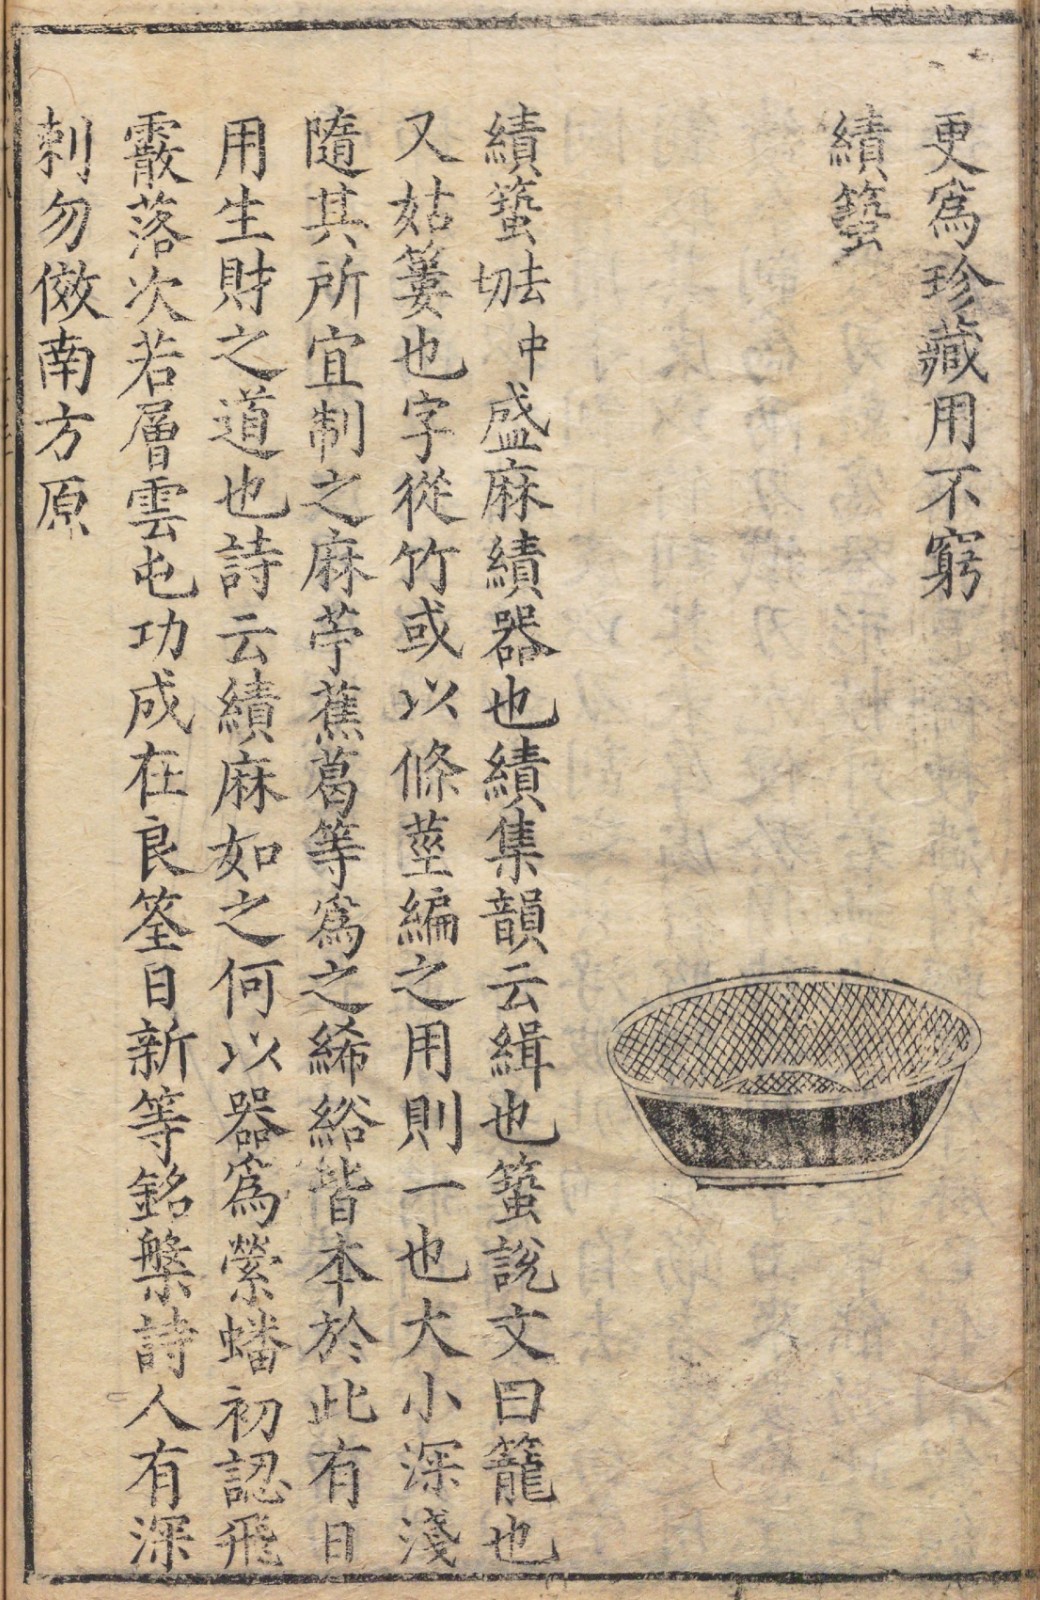 更爲珍藏用不窮
績䈅
績䈅去中切盛麻績器也績集韻云緝也䈅說文曰籠也
又姑簍也字從竹或以條莖編之用則一也大小深淺
隨其所宜制之麻苧蕉葛等爲之絺綌皆本於此有日
用生財之道也詩云績麻如之何以器爲縈蟠初認飛
霰落次若層雲屯功成在良筌日新等銘槃詩人有深
刺勿傚南方原